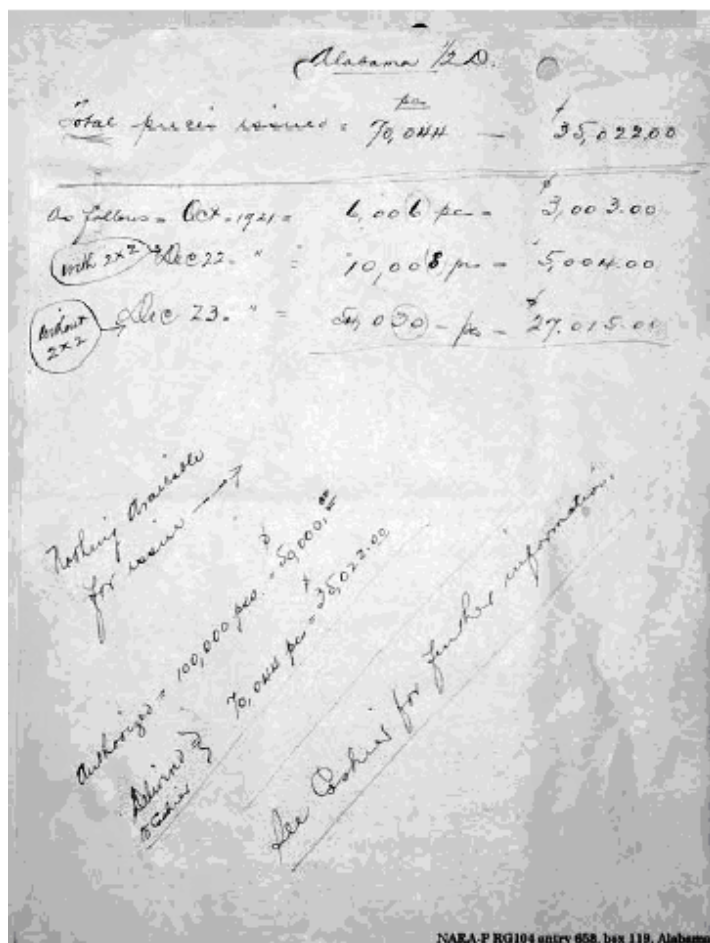 Alabama 1/2 D.
pcs
Total pieces issued = 70,044 — $35,022.00
As follows = Oct. 1921 = 6,006 pcs = $3,003.00
with 2x2 Dec 22. " = 10,008 pcs = 5,004.00
without 2x2 → Dec 23. " = 54,030 - pcs - $27,015.00
Nothing Available
for issue →
Authorized = 100,000 pcs = $50,000.00
Delivered to Cashier } 70,044 pcs = $35,022.00
See Cashier for further information.
NARA-P RG104 entry 658, box 119, Alabama